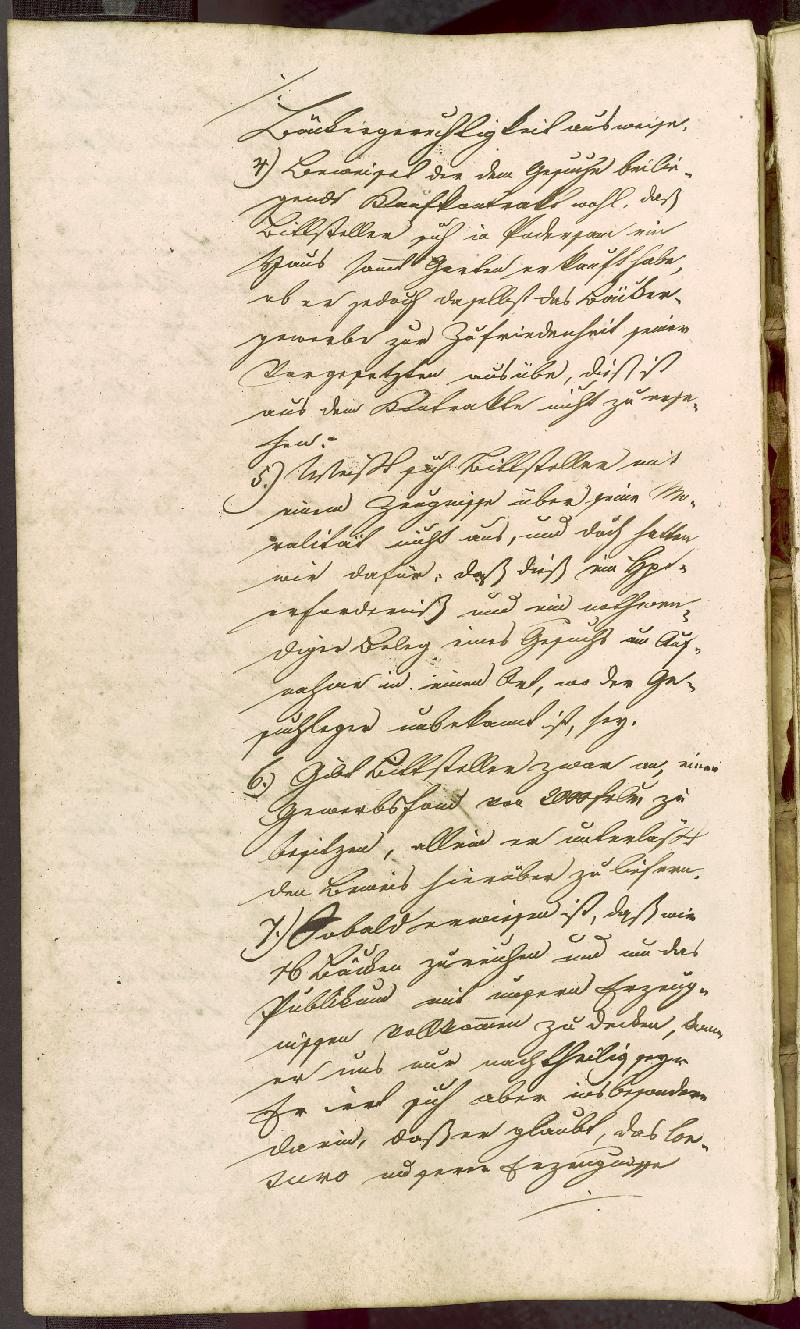 Bäckergerechtigkeit ausweise.
4) Beweiset der dem Gesuche beilie-
gende Kaufkontrakt wohl, daß
Bittsteller sich in ein
Haus sammt Garten erkauft habe,
ob er jedoch daselbst das Bäcker-
gewerbe zur Zufriedenheit seiner
Vorgesetzten ausübe, dieß ist
aus dem Kontrakte nicht zu erse-
hen.
5.) Weißt sich Bittsteller mit
einem Zeugnisse über seine Mo-
ralität nicht aus, und doch halten
wir dafür, daß dieß ein Hpt-
erforderniß und ein nothwen-
diger Beleg eines Gesuchs um Auf-
nahme in einem Ort, wo der Ge-
suchleger unbekannt ist, sey.
6.) Gibt Bittsteller zwar an, einen
Gewerbsfond von 2000 zu
besitzen, allein er unterläßt
den Beweis hierüber zu liefern.
7.) Sobald erwiesen ist, daß wir
16 Bäcken zureichen und um das
Publikum mit unsern Erzeug-
nissen vollkommen zu decken, kann
er uns nur nachtheilig seyn
Er irrt sich aber insbesondere
darin, daß er glaubt, das
unserer Erzeugnisse